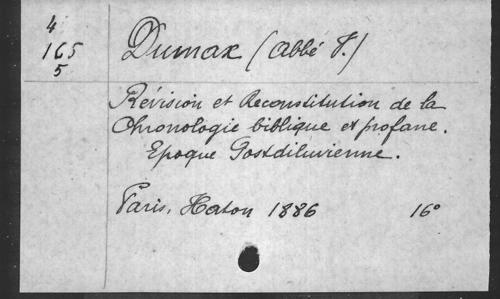 4
165
5
Dumax (Abbé V.)
Révision et Reconstitution de la
Chronologie biblique et profane.
Epoque Postdiluvienne.
Paris, Haton 1886 16°